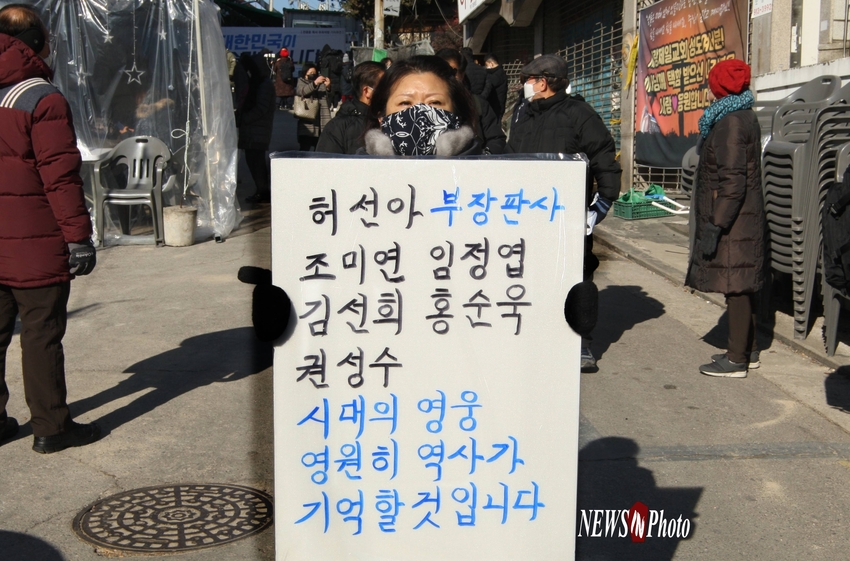 대한민국이
허선아 부장판사
조미연 임정엽
김선희 홍순욱
권성수
시대의 영웅
영원히 역사가
기억할것입니다
NEWS Photo